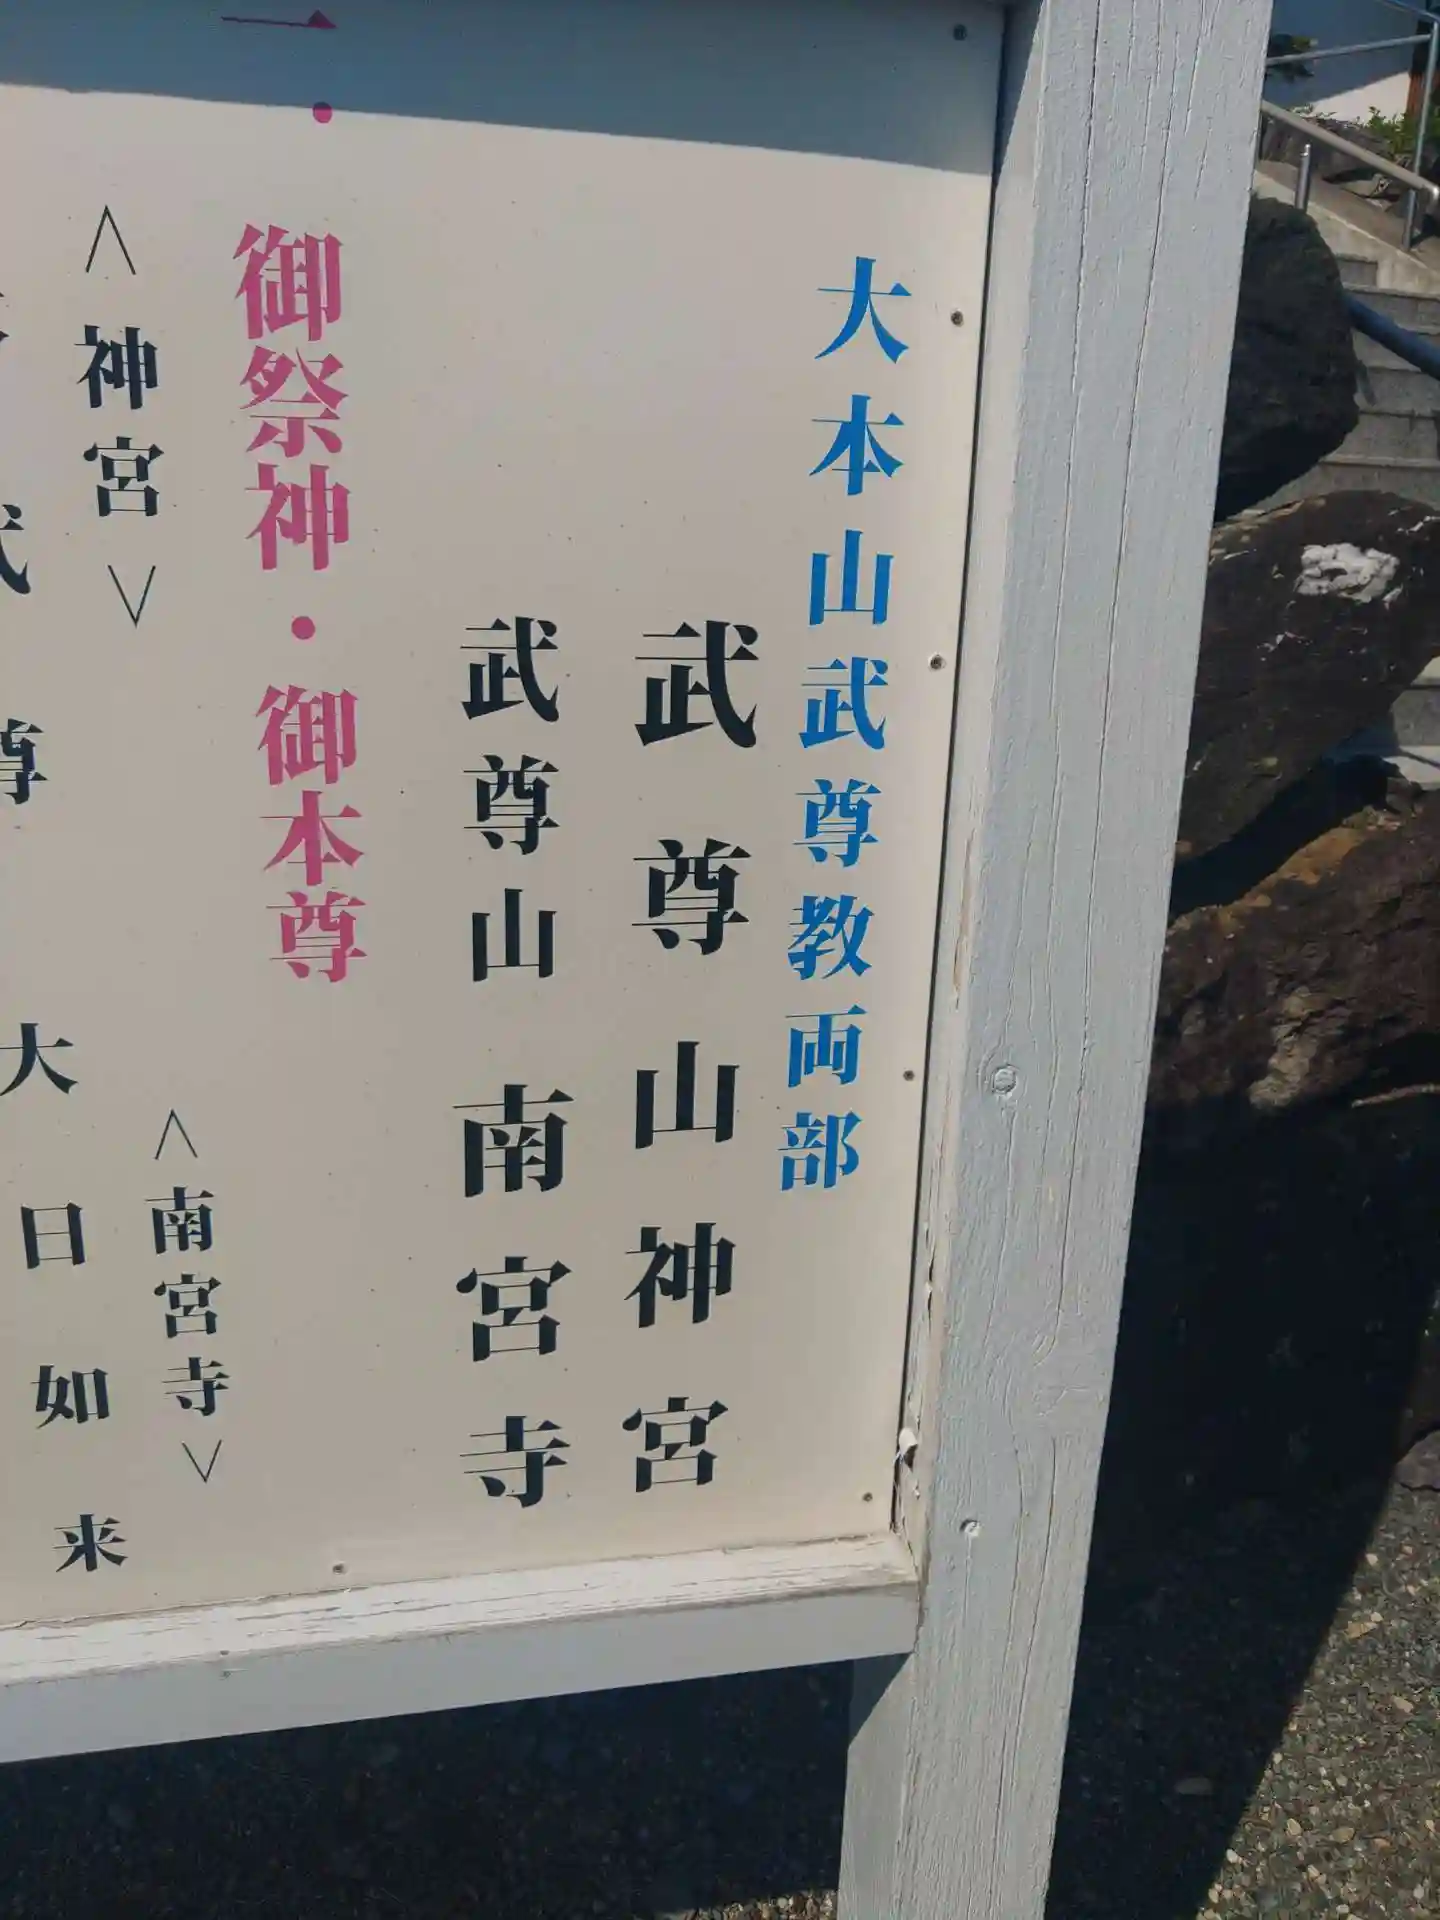 大本山武尊教両部
武尊山神宮
武尊山 南宮寺
一・御祭神・御本尊
〈神宮〉
〈南宮寺〉
武尊
大日如来